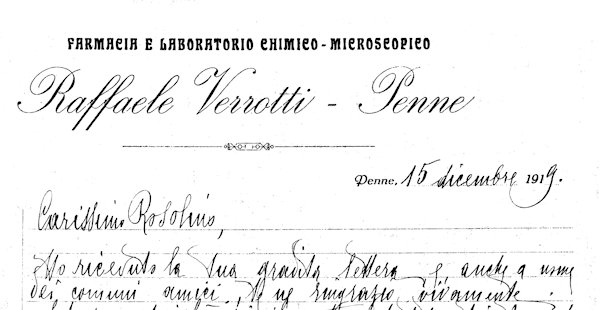 FARMACIA E LABORATORIO CHIMICO-MICROSCOPICO
Raffaele Verrotti - Penne
Penne, 15 dicembre 1919.
Carissimo Rosolino,
Ho ricevuto la tua gradita lettera e, anche a nome
dei comuni amici, te ne ringrazio vivamente.